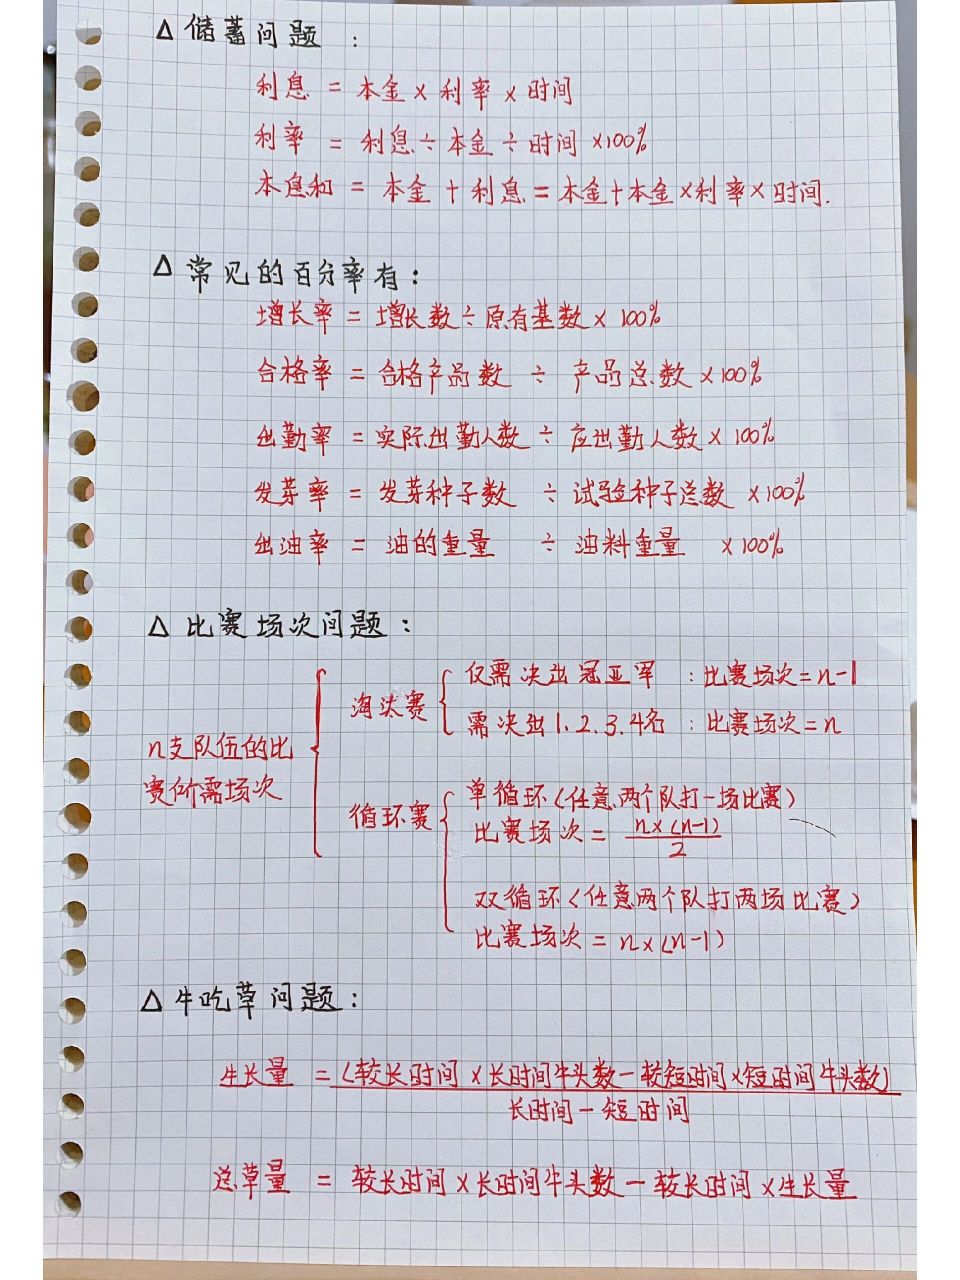 △ 储蓄问题：
利息 = 本金 × 利率 × 时间
利率 = 利息 ÷ 本金 ÷ 时间 ×100%
本息和 = 本金 + 利息 = 本金 + 本金 × 利率 × 时间.
△ 常见的百分率有：
增长率 = 增长数 ÷ 原有基数 × 100%
合格率 = 合格产品数 ÷ 产品总数 × 100%
出勤率 = 实际出勤人数 ÷ 应出勤人数 × 100%
发芽率 = 发芽种子数 ÷ 试验种子总数 ×100%
出油率 = 油的重量 ÷ 油料重量 ×100%
△ 比赛场次问题：
n支队伍的比
赛所需场次
淘汰赛
仅需决出冠亚军：比赛场次=n-1
需决出1.2.3.4名：比赛场次=n
循环赛
单循环(任意两个队打一场比赛)
比赛场次 = n×(n-1)/2
双循环(任意两个队打两场比赛)
比赛场次 = n×(n-1)
△ 牛吃草问题：
生长量 = (较长时间 × 长时间牛头数 - 较短时间 × 短时间牛头数)
长时间 - 短时间
总草量 = 较长时间 × 长时间牛头数 - 较长时间 × 生长量